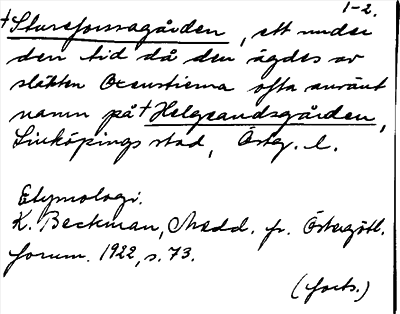 1-2.
†Stureforsgården, ett under
den tid då den ägdes av
släkten Oxenstierna ofta använt
namn på †Helgeandsgården,
Linköpings stad, Österg. l.
Etymologi.
K. Beckman, Medd. fr. Östergötl.
fornm. 1922, s. 73.
(forts.)